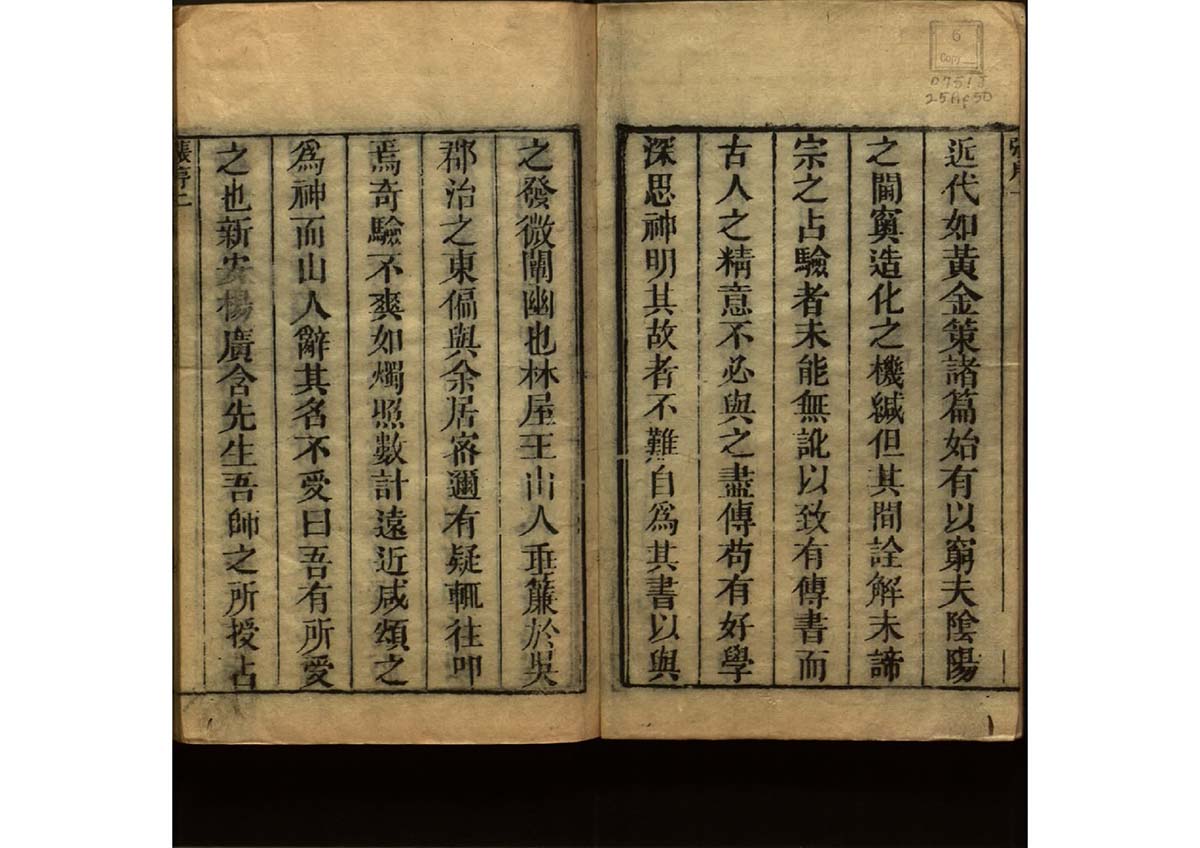 6
Copy
張序一
近代如黃金策諸篇始有以窮夫陰陽
之閫奧造化之機緘但其間詮解未諦
宗之占驗者未能無訛以致有傳書而
古人之精意不必與之盡傳苟有好學
深思神明其故者不難自為其書以與
之發微闡幽也林屋王山人垂簾於吳
郡治之東偏與余居密邇有疑輒往叩
焉奇驗不爽如燭照數計遠近咸頌之
為神而山人辭其名不愛曰吾有所愛
之也新安楊廣含先生吾師之所授占
張序二